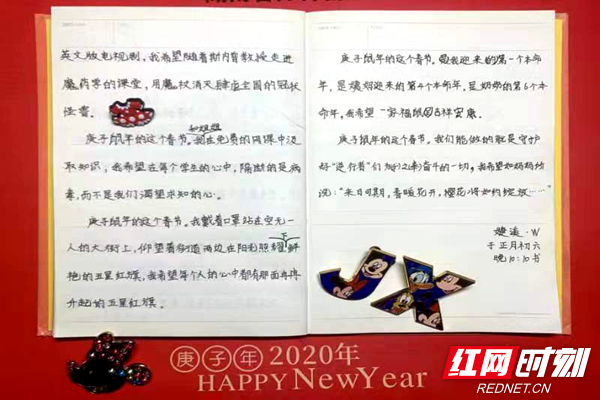 英文版电视剧，我希望随着斯内普教授走进
魔药学的课堂，用魔杖消灭肆虐全国的冠状
怪兽。
和姐姐
庚子鼠年的这个春节。我在免费的网课中汲
取知识，我希望在每个学生的心中，隔断的是病
毒，而不是我们渴望求知的心。
庚子鼠年的这个春节。我戴着口罩站在空无一
人的大街上，仰望着街道两边在阳光照耀下鲜
艳的五星红旗，我希望每个人的心中都有那面冉冉
升起的五星红旗。
庚子鼠年的这个春节。是我迎来的第一个本命
年，是姨姐迎来的第4个本命年，是奶奶的第6个本
命年，我希望一家福鼠团吉祥安康。
庚子鼠年的这个春节。我们能做的就是守护
好“逆行者”们为之奋斗的一切，我希望如妈妈所
说：“来日可期，春暖花开，樱花将如约绽放……”
·W
于正月初六
晚10:10书
JX
庚子年 2020年
HAPPY New Year
红网时刻
REDNET.CN